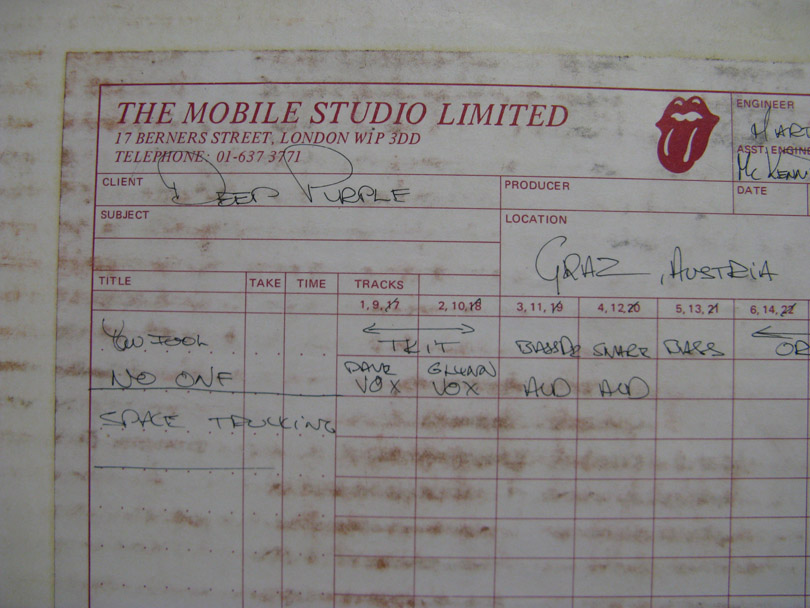 THE MOBILE STUDIO LIMITED
17 BERNERS STREET, LONDON W1P 3DD
TELEPHONE: 01-637 3771
ENGINEER
HART
ASST ENGINE
MCKENN
CLIENT DEEP PURPLE
PRODUCER
DATE
SUBJECT
LOCATION
GRAZ, AUSTRIA
TITLE TAKE TIME TRACKS
1, 9, 17 2, 10, 18 3, 11, 19 4, 12, 20 5, 13, 21 6, 14, 22
YOU FOOL KIT BASS DR SNARE BASS OR
NO ONE DAVE VOX GLENN VOX AUD AUD
SPACE TRUCKING